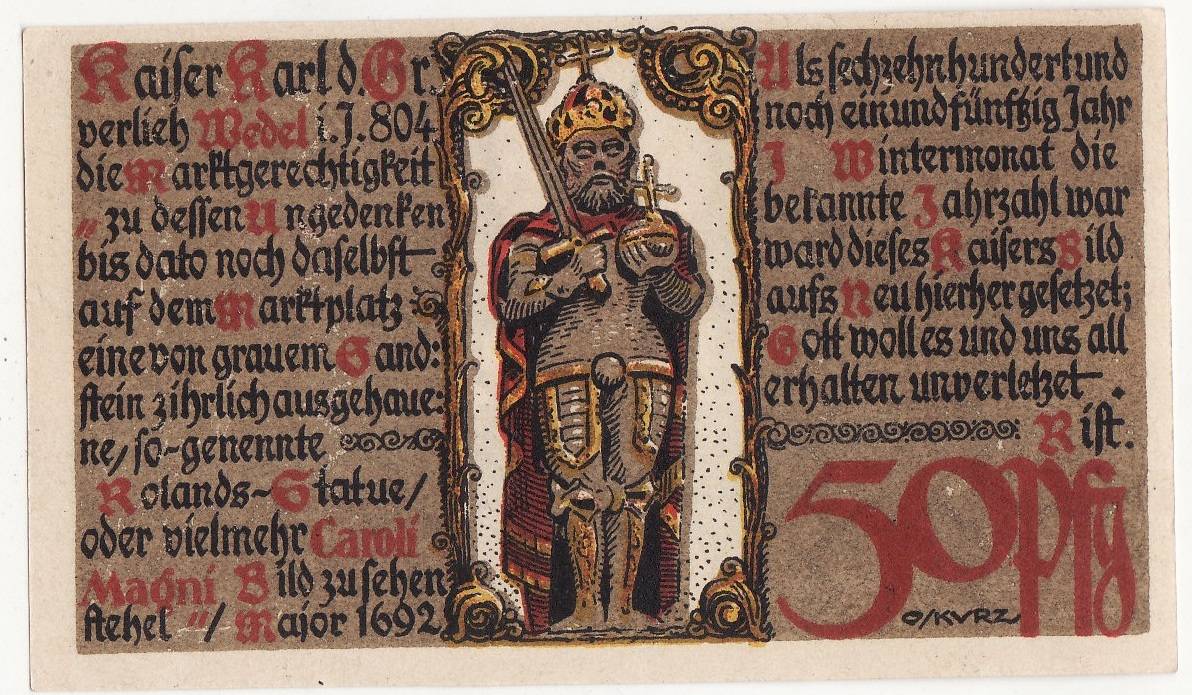 Kaiser Karl d. Gr.
verlieh Wedel i. J. 804
die Marktgerechtigkeit
„zu dessen Ungedenken
bis dato noch daselbst
auf dem Marktplatz
eine von grauem Sand:
stein zihrlich ausgehaue:
ne/ so-genennte
Rolands-Statue/
oder vielmehr Caroli
Magni Bild zu sehen
stehet"/ Major 1692.
Als sechzehnhundertund
noch einundfünftzig Jahr
I Wintermonat die
bekannte Jahrzahl war
ward dieses Kaisers Bild
aufs Neu hierher gesetzet;
Gott woll es und uns all
erhalten unverletzet.
Rist.
50 Pfg
O/KVRZ